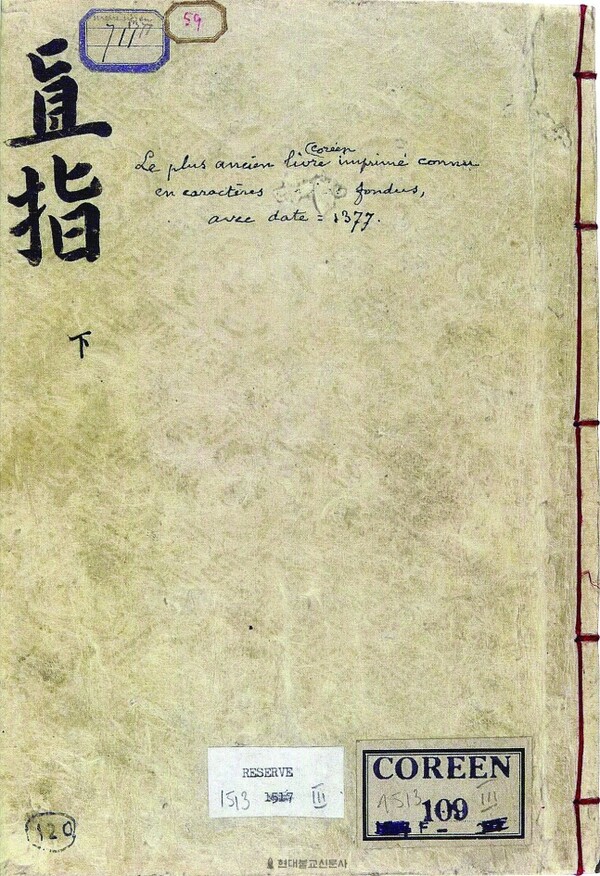 711
1377
59
直指
下
Coréen
Le plus ancien livre imprimé connu
en caractères fondus,
avec date = 1377.
RESERVE
1513 1517 III
COREEN
1513 109 III
F
120
현대불교신문사